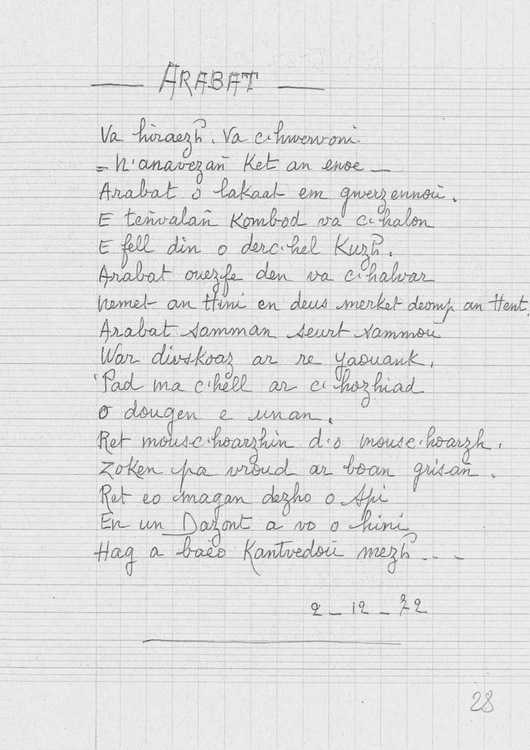 ARABAT
Va hiraezh. Va c'hwervoni
= N'anavezañ Ket an enoe —
Arabat o lakaat em gwerzennoù.
E teñvalañ Kombod va c'halon
E fell din o derc'hel Kuzh.
Arabat ouezfe den va c'halvar
Nemet an Hini en deus merket deomp an Hent.
Arabat samman seurt sammoù
War divskoaz ar re yaouank,
'Pad ma c'hell ar c'hozhiad
O dougen e unan.
Ret mousc'hoarzhin d'o mousc'hoarzh.
Zoken pa vroud ar boan grisañ.
Ret eo magan dezho o Spi
En un Dazont a vo o hini
Hag a baeo Kantvedoù mezh - - -
2 - 12 - 72
28